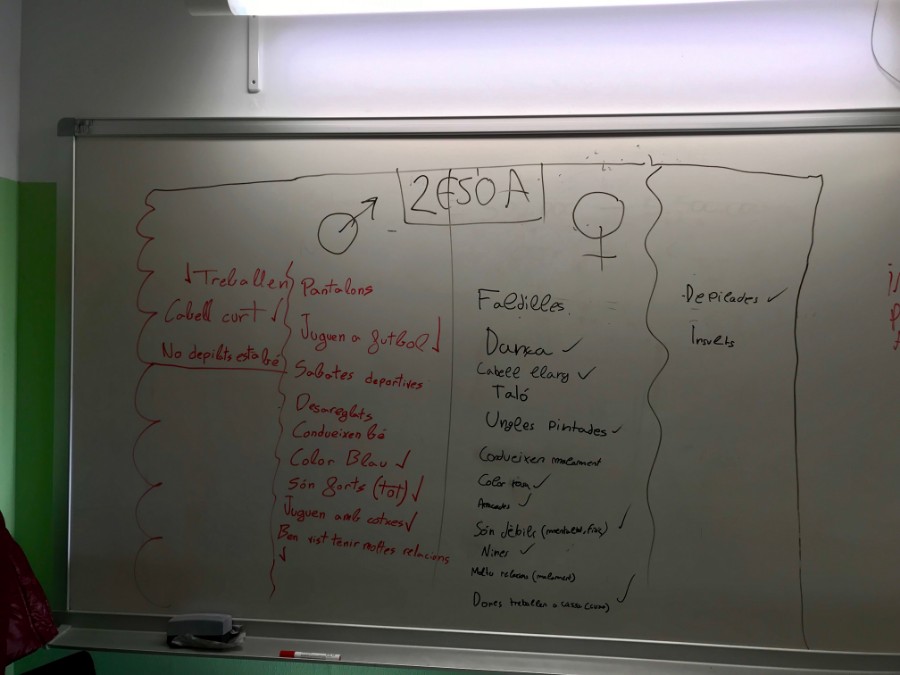 2ESO A
Treballen
Cabell curt
No depilats està bé
Pantalons
Juguen a futbol
Sabates deportives
Desareglats
Condueixen bé
Color Blau
Són forts (tot)
Juguen amb cotxes
Ben vist tenir moltes relacions
Faldilles
Danxa
Cabell llarg
Taló
Ungles pintades
Condueixen malament
Color rosa
Són dèbils
Nines
(malament)
Dones treballen a casa
- Depilades
Insults